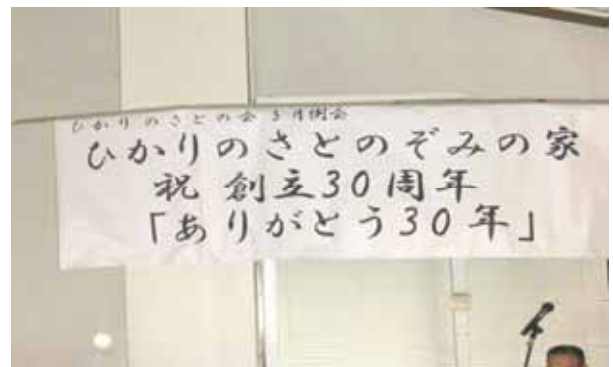 ひかりのさとの会 5月例会
ひかりのさとのぞみの家
祝 創立30周年
「ありがとう30年」